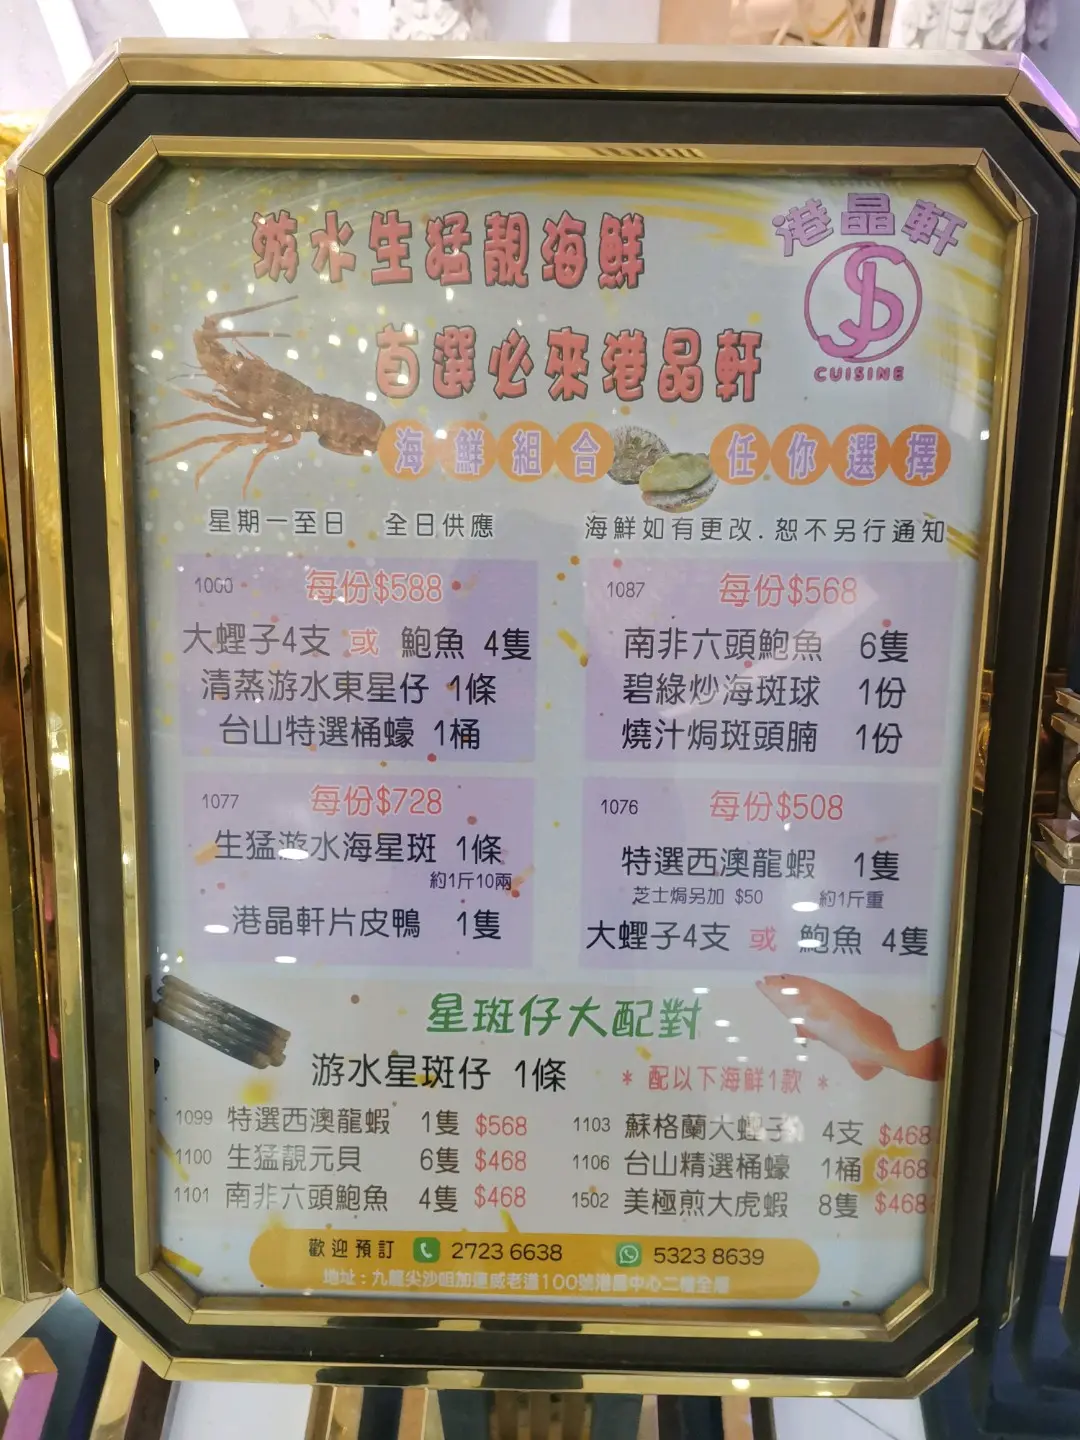 游水生猛靚海鮮
港晶軒
首選必來港晶軒
CUISINE
海鮮組合 任你選擇
星期一至日 全日供應
海鮮如有更改.恕不另行通知
1060 每份$588
大蟶子4支 或 鮑魚 4隻
清蒸游水東星仔 1條
台山特選桶蠔 1桶
1087 每份$568
南非六頭鮑魚 6隻
碧綠炒海斑球 1份
燒汁焗斑頭腩 1份
1077 每份$728
生猛游水海星斑 1條
約1斤10兩
港晶軒片皮鴨 1隻
1076 每份$508
特選西澳龍蝦 1隻
芝士焗另加 $50 約1斤重
大蟶子4支 或 鮑魚 4隻
星斑仔大配對
游水星斑仔 1條 * 配以下海鮮1款 *
1099 特選西澳龍蝦 1隻 $568
1100 生猛靚元貝 6隻 $468
1101 南非六頭鮑魚 4隻 $468
1103 蘇格蘭大蟶子 4支 $468
1106 台山精選桶蠔 1桶 $468
1502 美極煎大虎蝦 8隻 $468
歡迎預訂 2723 6638 5323 8639
地址：九龍尖沙咀加連威老道100號港晶中心二樓全層